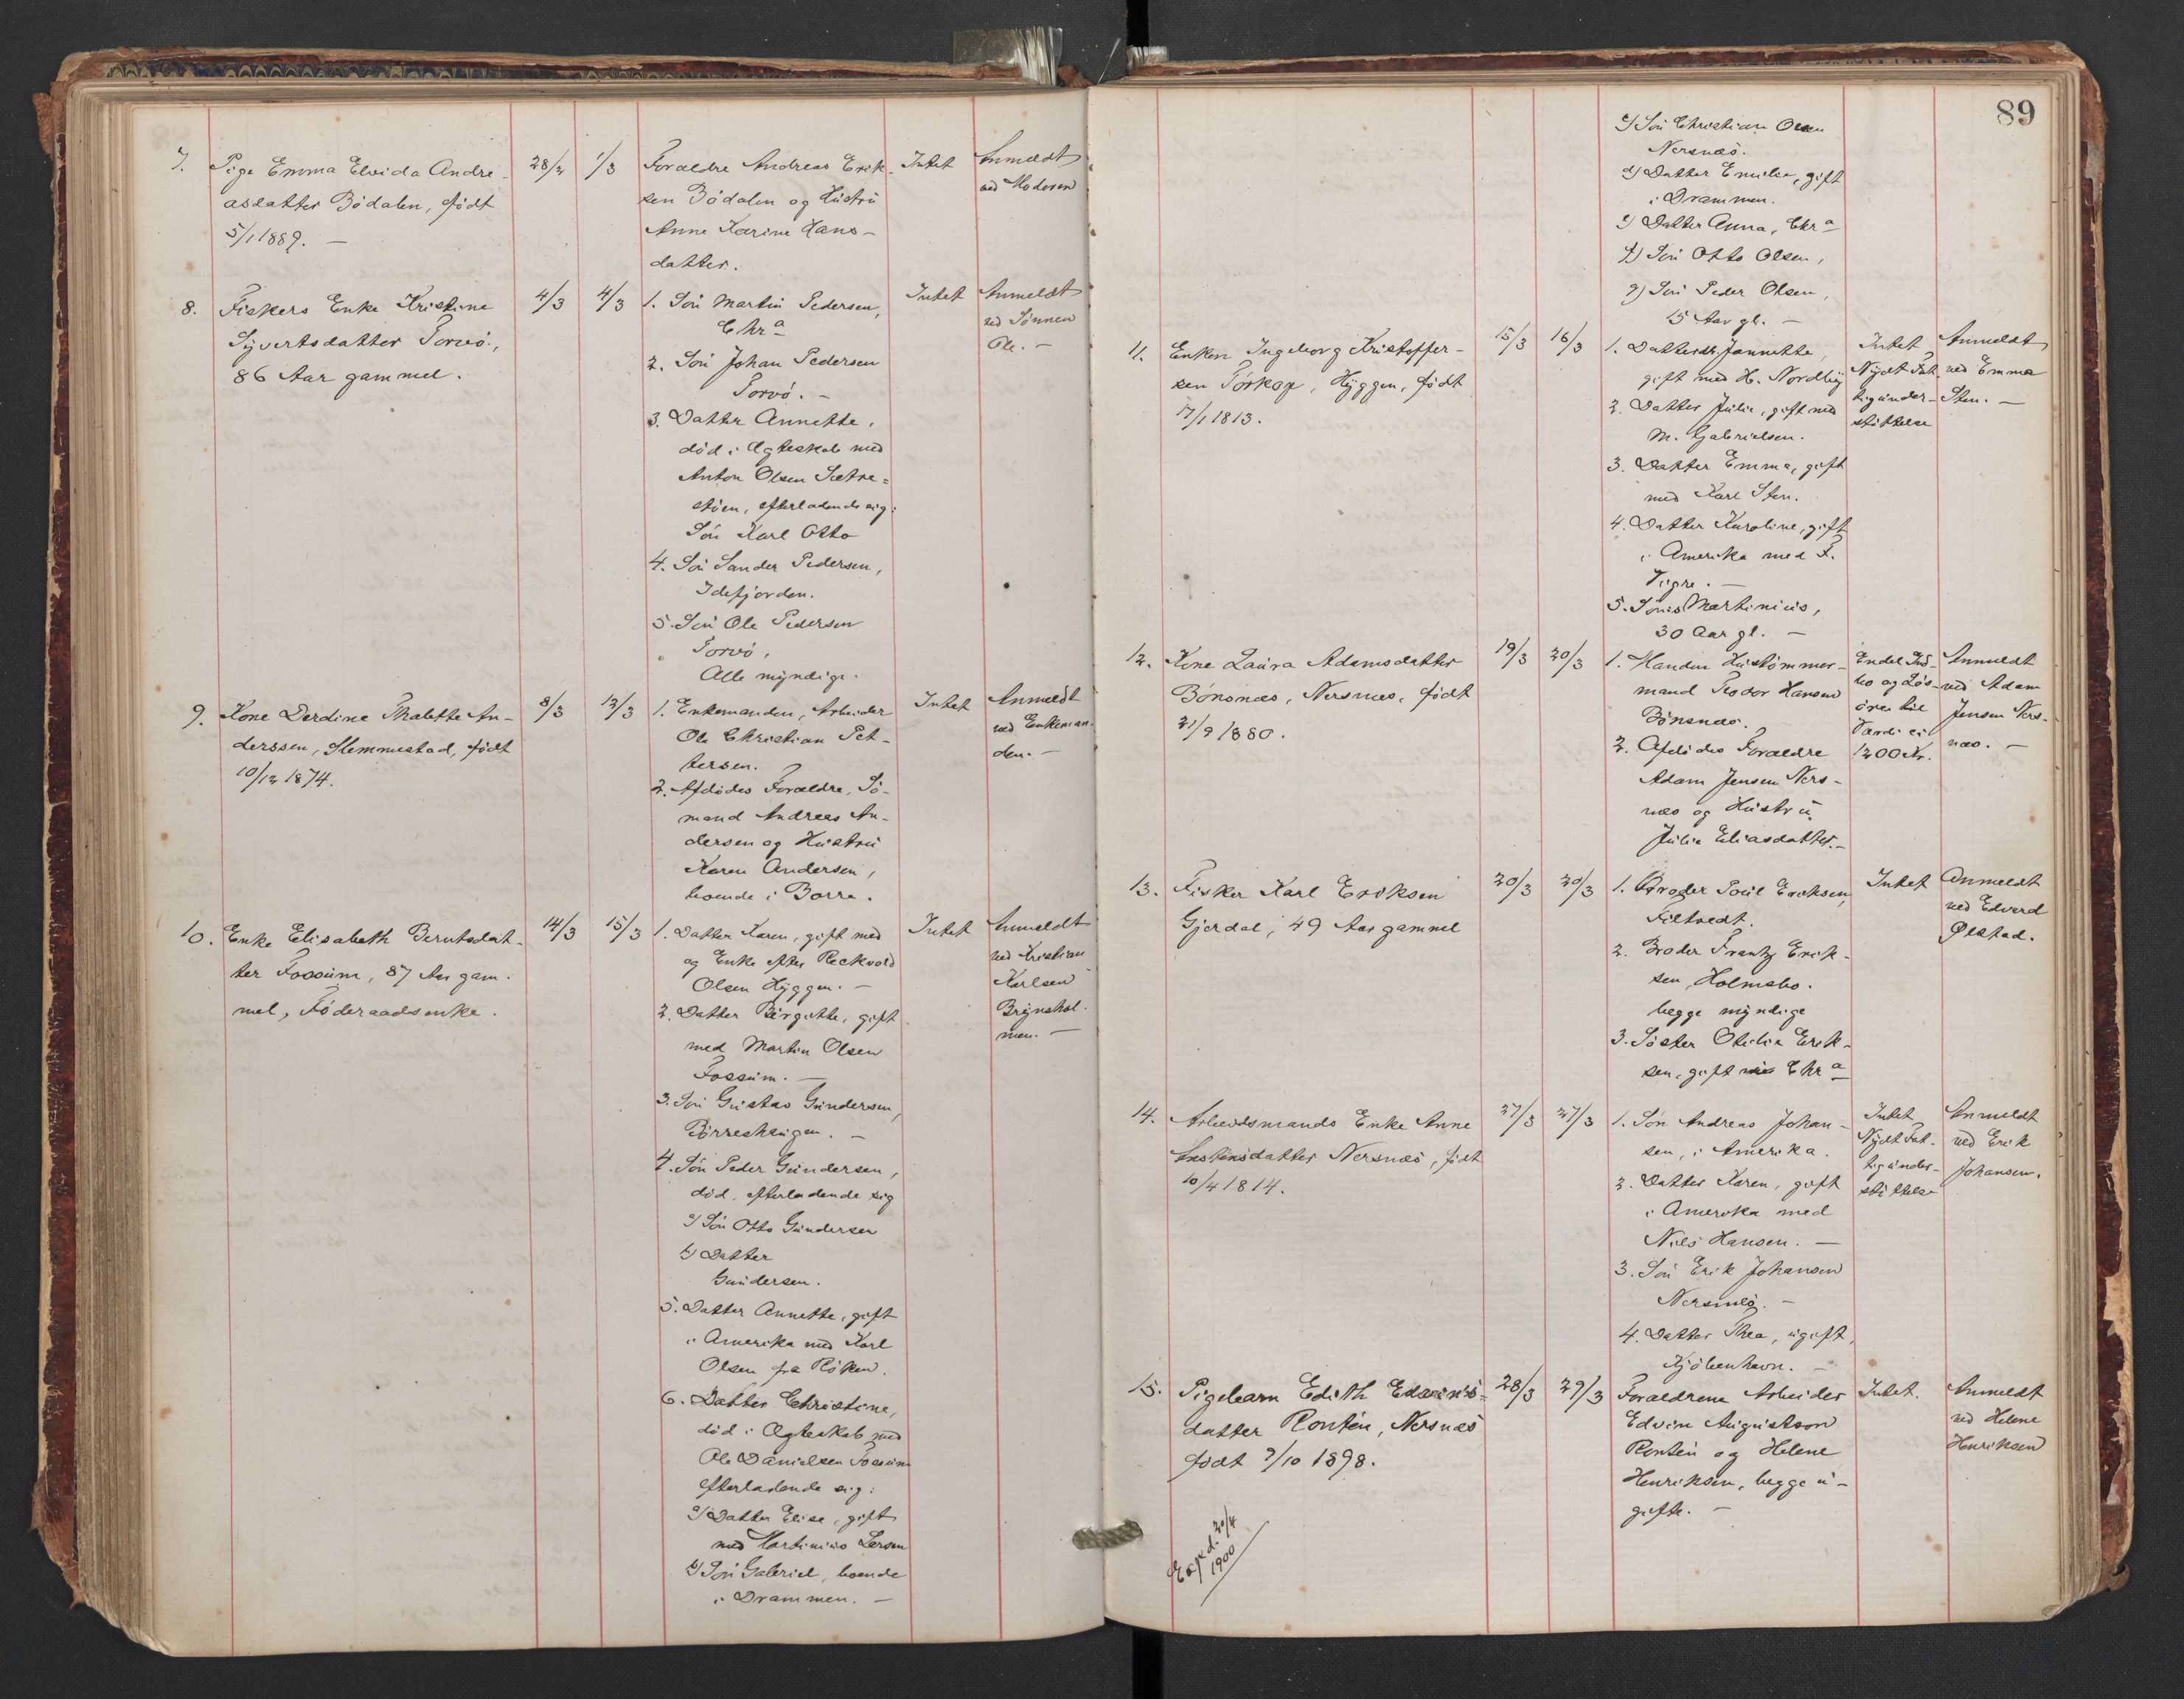 7. Pige Emma Elvida Andre-
asdatter Bödalen, født
5/1 1889. —
28/2
1/3
Foraldre Andreas Erik-
sen Bödalen og Hustru
Anne Karine Hans-
datter.
Intet
Anmeldt
ved Moderen
8. Fiskers Enke Kristine
Syvertsdatter Torvö,
86 Aar gammel.
4/3
4/3
1. Sön Martin Pedersen,
Chra
2. Sön Johan Pedersen
Torvö. —
3. Datter Annette,
död i Ægteskab med
Anton Olsen Sætre-
stöen, efterladende sig:
Sön Karl Otto
4. Sön Sander Pedersen,
Idefjorden.
5. Sön Ole Pedersen
Torvö,
Alle myndige.
Intet
Anmeldt
ved Sönnen
Ole. —
9. Kone Derdine Thalette An-
derssen, Slemmestad, født
10/12 1874.
8/3
13/3
1. Enkemanden, Arbeider
Ole Christian Pet-
tersen.
2. Afdödes Foraldre, Sö-
mand Andreas An-
dersen og Hustru
Karen Andersen,
boende i Borre.
Intet
Anmeldt
ved Enkeman-
den. —
10. Enke Elisabeth Berntsdat-
ter Fossum, 87 Aar gam-
mel, Föderaadsenke.
14/3
15/3
1. Datter Karen, gift med
og Enke efter Reckvard
Olsen Hyggen. —
2. Datter Birgitte, gift
med Martin Olsen
Fossum. —
3. Sön Gustav Gundersen,
Börreshaugen. —
4. Sön Peder Gundersen,
död, efterladende sig
a) Sön Otto Gundersen
b) Datter
Gundersen.
5. Datter Annette, gift
i Amerika med Karl
Olsen fra Röken.
6. Datter Christine,
död i Ægteskab med
Ole Danielsen Fossum
efterladende sig:
a) Datter Elise, gift
med Martinius Larsen
b) Sön Gabriel, boende
i Drammen. —
Intet
Anmeldt
ved Kristian
Karlsen
Brynshol-
men. —
89
c) Sön Christian Olsen
Nersnæs.
d) Datter Emilie, gift
i Drammen.
e) Datter Anna, Chra
f) Sön Otto Olsen,
g) Sön Peder Olsen,
15 Aar gl. —
11. Enken Ingeborg Kristoffer-
sen Torkop, Hyggen, født
17/1 1813.
15/3
16/3
1. Datter Jannette,
gift med H. Nordby
2. Datter Julie, gift med
M. Gabrielsen.
3. Datter Emma, gift
med Karl Sten.
4. Datter Karoline, gift
i Amerika med F.
5. Sön Martinius,
30 Aar gl. —
Intet
Nydt Fat-
tigunder-
stöttelse
Anmeldt
ved Emma
Sten. —
12. Kone Laura Adamsdatter
Bönsnæs, Nersnæs, født
21/9 1880.
19/3
20/3
1. Manden Hustömmer-
mand Teodor Hansen
Bönsnæs.
2. Afdödes Foraldre
Adam Jensen Ners-
næs og Hustru
Julie Eliasdatter. —
Endel Ind-
bo og Lös-
öre til
Værdi ei
1200 Kr.
Anmeldt
ved Adam
Jensen Ners-
næs. —
13. Fisker Karl Eriksen
Gjerdal, 49 Aar gammel
20/3
20/3
1. Broder Poul Eriksen,
Filtvedt.
2. Broder Frantz Erik-
sen, Holmsbo.
begge myndige
3. Söster Otilie Erik-
sen, gift Chra
Intet
Anmeldt
ved Edvard
Ølstad.
14. Arbeidsmands Enke Anne
Enstensdatter Nersnæs, født
10/4 1814.
27/3
27/3
1. Sön Andreas Johan-
sen, i Amerika.
2. Datter Karen, gift
i Amerika med
Nils Hansen. —
3. Sön Erik Johansen
Nersnæs. —
4. Datter Thea, ugift,
Kjöbenhavn. —
Intet
Nydt Fat-
tigunder-
stöttelse
Anmeldt
ved Erik
Johansen.
15. Pigebarn Edith Edvins-
datter Rontén, Nersnæs
født 7/10 1898.
28/3
29/3
Foraldrene Arbeider
Edvin Augustson
Rontén og Helene
Henriksen, begge u-
gifte. —
Intet.
Anmeldt
ved Helene
Henriksen
Exped. 20/4
1900